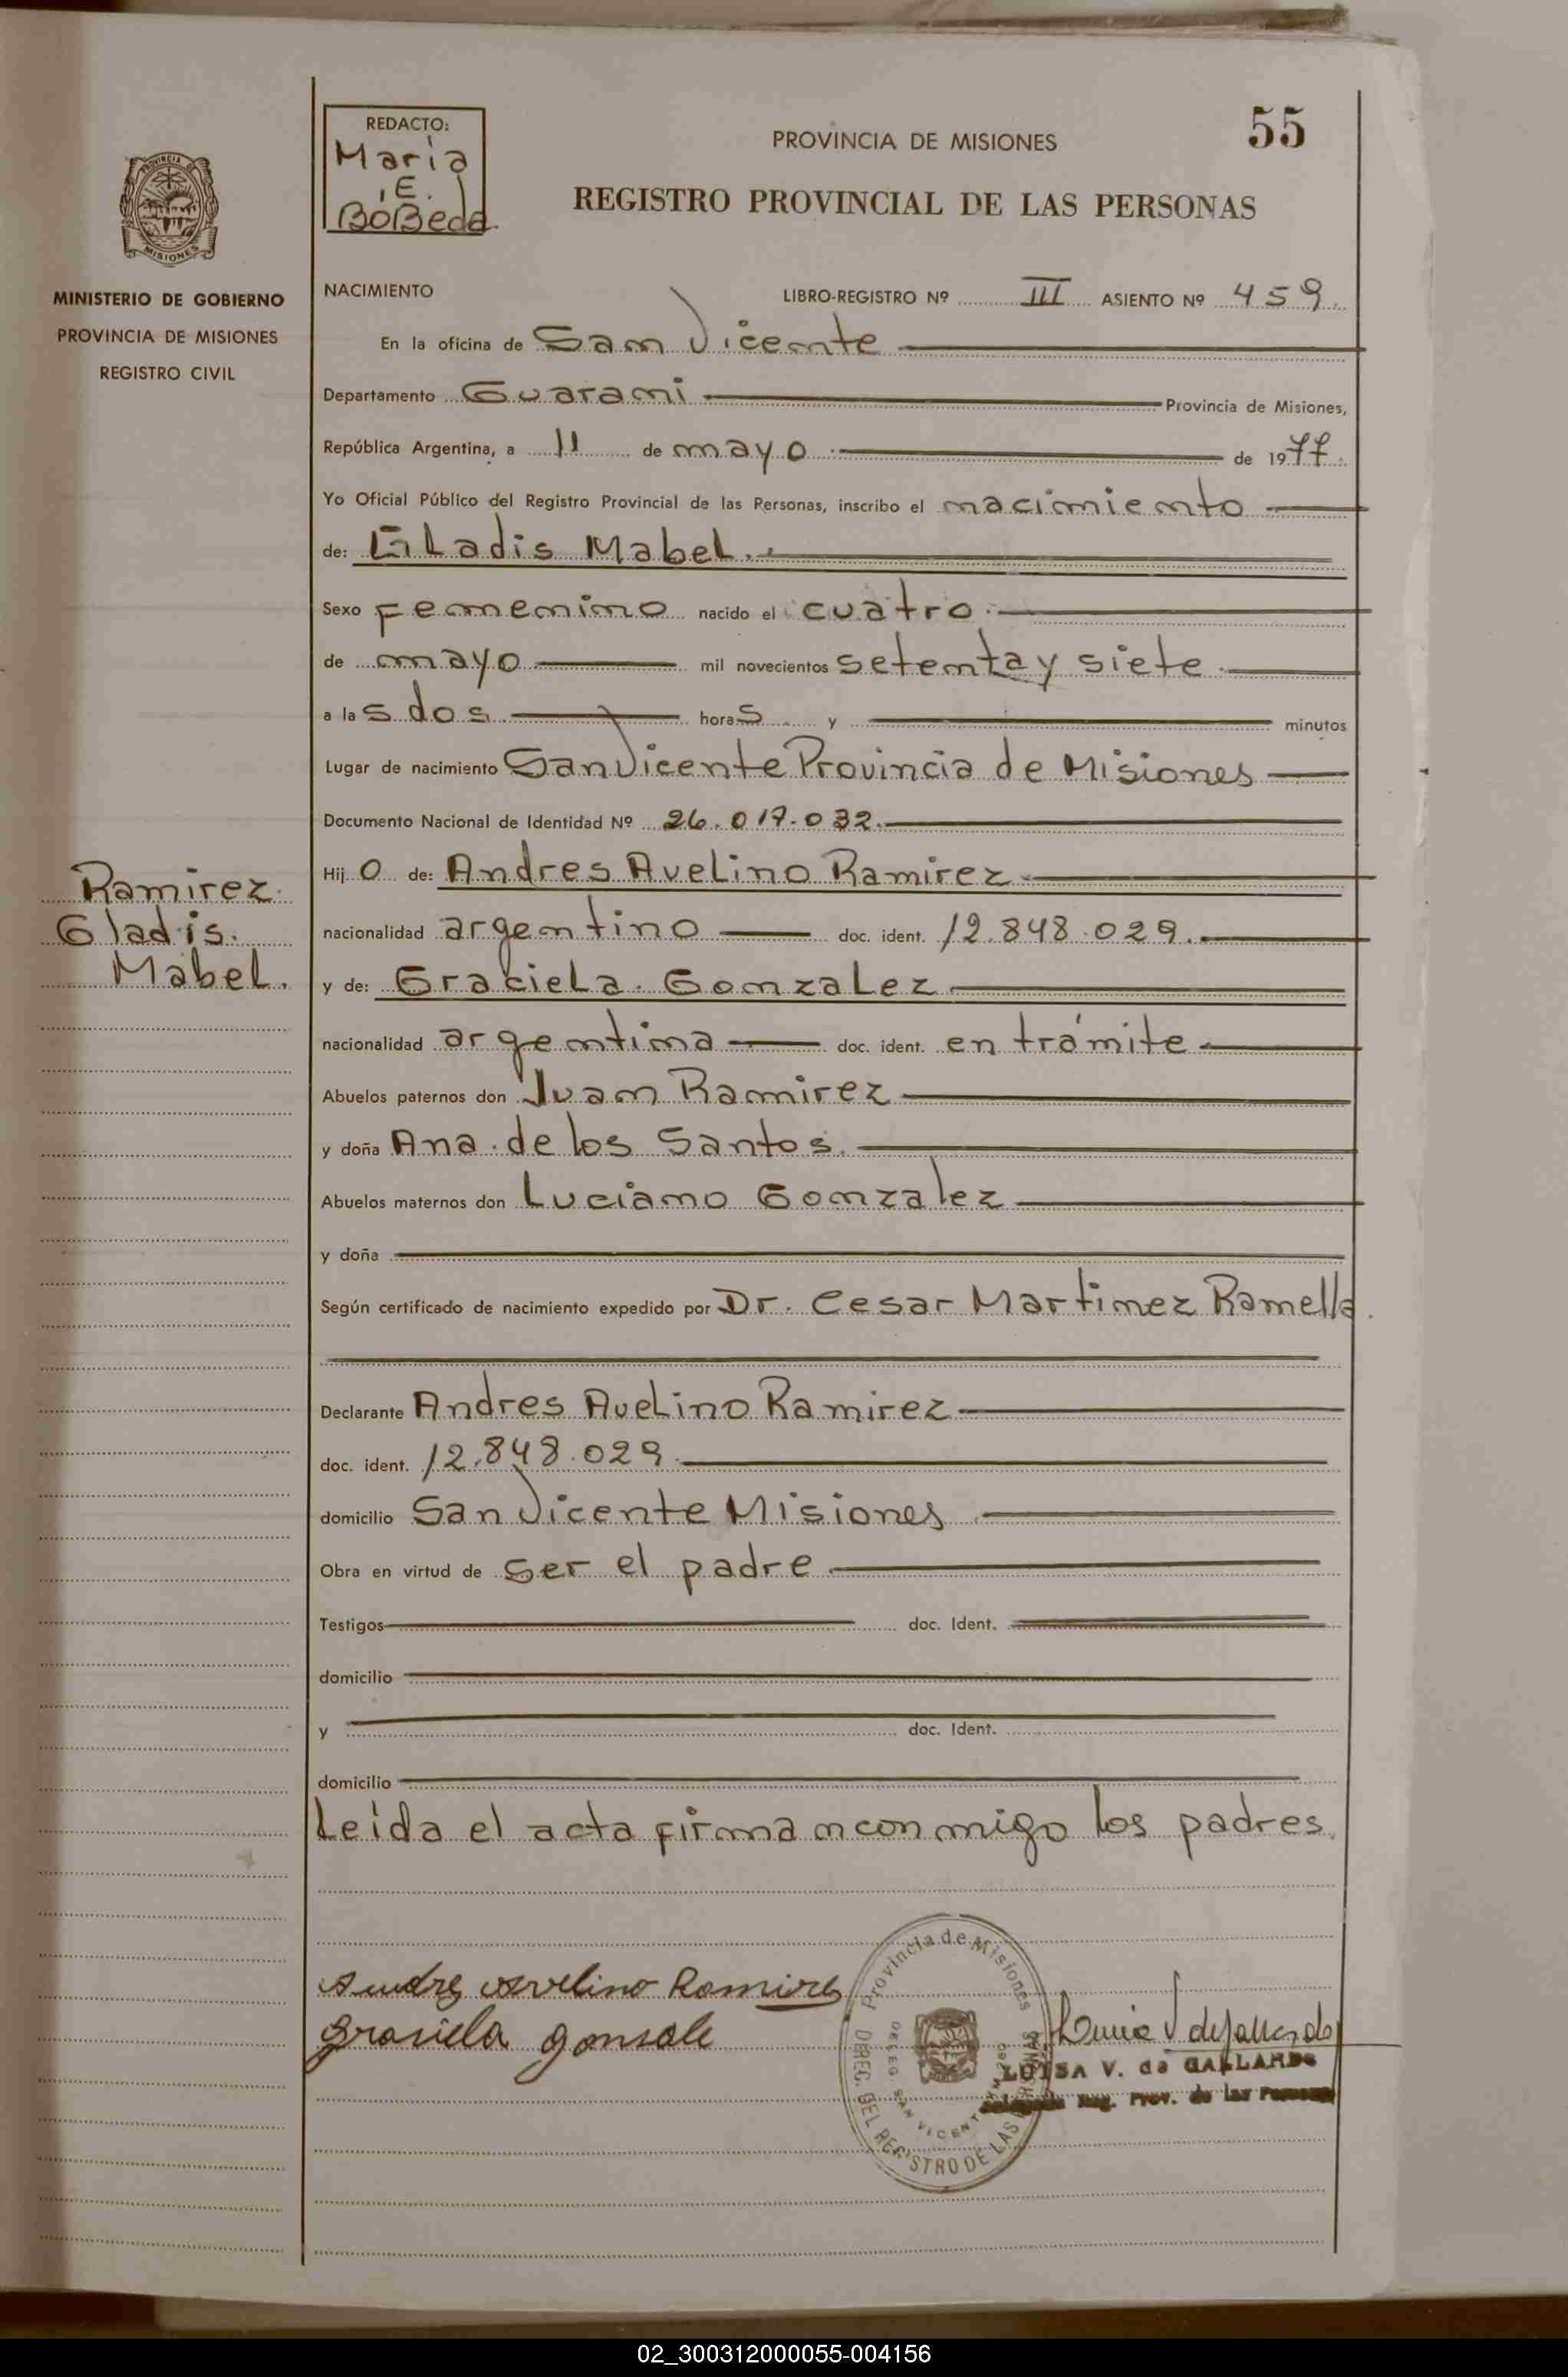 55
REDACTO:
Maria
E.
BoBeda
PROVINCIA DE MISIONES
REGISTRO PROVINCIAL DE LAS PERSONAS
PROVINCIA DE
MISIONES
MINISTERIO DE GOBIERNO
PROVINCIA DE MISIONES
REGISTRO CIVIL
NACIMIENTO LIBRO-REGISTRO Nº III ASIENTO Nº 459.
En la oficina de San Vicente
Departamento Guarani Provincia de Misiones,
República Argentina, a 11 de mayo de 1977.
Yo Oficial Público del Registro Provincial de las Personas, inscribo el nacimiento
de: GLadis MabeL.
Sexo femenino nacido el cuatro
de mayo mil novecientos setenta y siete
a las dos horas y minutos
Lugar de nacimiento San Vicente Provincia de Misiones
Documento Nacional de Identidad Nº 26.017.032.
Hijo de: Andres AveLino Ramirez
nacionalidad argentino doc. ident. 12.848.029.
y de: GracieLa GonzaLez
nacionalidad argentina doc. ident. en trámite
Abuelos paternos don Juan Ramirez
y doña Ana de los Santos.
Abuelos maternos don Luciano Gonzalez
y doña
Según certificado de nacimiento expedido por Dr. Cesar Martinez Ramella.
Declarante Andres AveLino Ramirez
doc. ident. 12.848.029
domicilio San Vicente Misiones
Obra en virtud de ser el padre
Testigos doc. Ident.
domicilio
y doc. Ident.
domicilio
Leida el acta firman conmigo los padres.
Ramirez
Gladis.
MabeL.
Andres Avelino Ramires
Grasiela gonsale
Provincia de Misiones
DIREC. DEL REGISTRO DE LAS PERSONAS
DELEG. SAN VICENTE
LUISA V. de GALLARDO
Delegada Reg. Prov. de las Personas
02_300312000055-004156